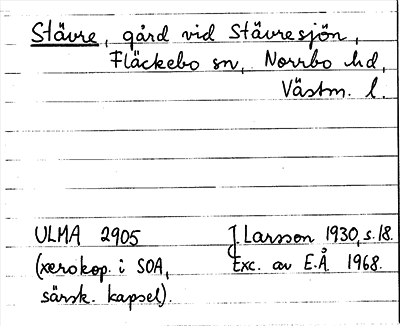 Stävre, gård vid Stävresjön,
Fläckebo sn, Norrbo hd,
Västm. l.
ULMA 2905 J. Larsson 1930, s. 18.
(xerokop. i SOA, Exc. av E.Å 1968.
särsk. kapsel).